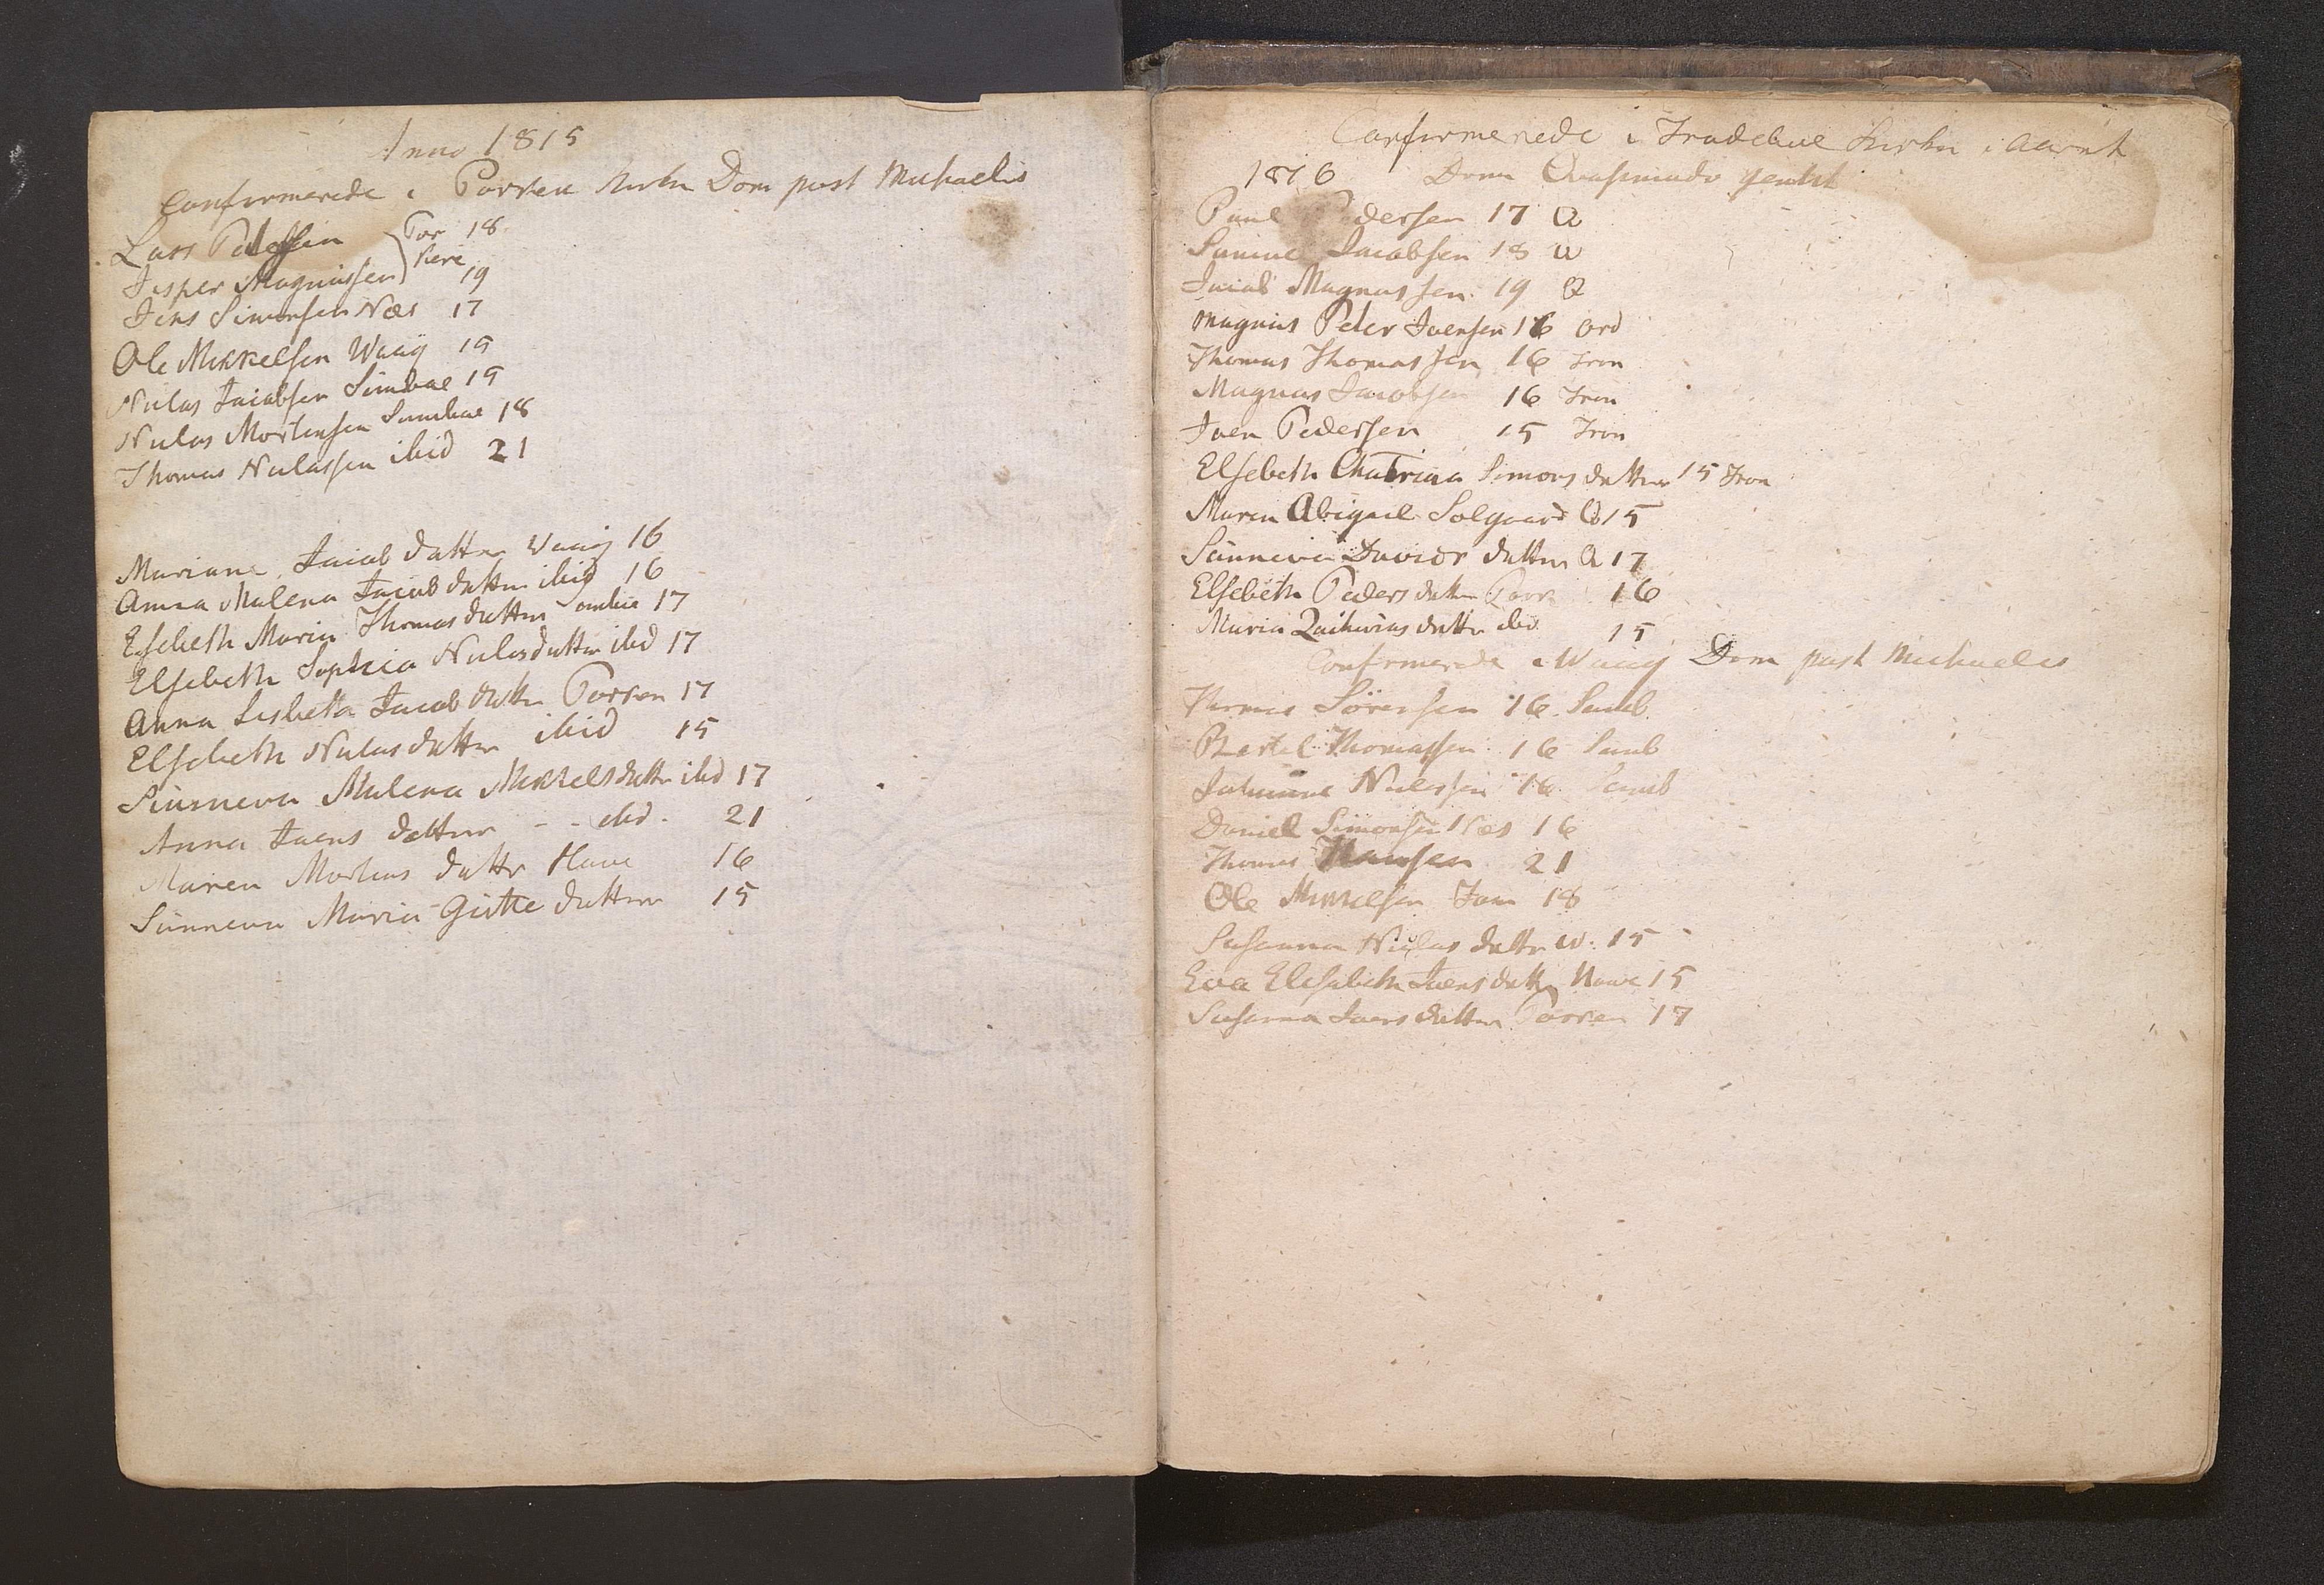 Anno 1815
Confirmerede i Porkere Kirke Dom post Michaelis
Lars Pedersen Por 18
Jesper Magnussen kere 19
Jens Simonsen Næs 17
Ole Mikkelsen Waaig 19
Niclas Jacobsen Sumbøe 19
Niclas Mortensen Sumbøe 18
Thomas Niclassen ibid 21
Mariane Jacobdatter Waaig 16
Anna Malena Jacobdatter ibid 16
Elsebeth Maria Thomasdatter 17
Elsebeth Sophia Niclasdatter ibid 17
Anna Lisbeth Jacobdatter Porken 17
Elsebeth Niclasdatter ibid 15
Sunneva Malena Mikkelsdatter ibid 17
Anna Joensdatter - - ibid. 21
Maren Mortensdattr Hove 16
Sunneva Maria Gutte datter 15
Confirmerede i Frodeboe Kirke i Aaret
1816 Domi Quasimodo genit
Poul Pedersen 17 Q
Samuel Jacobsen 18 W
Jacob Magnussen 19 Q
Magnus Peter Joensen 16 Ord
Thomas Thomassen 16 Fron
Magnus Jacobsen 16 Fron
Joen Pedersen 15 Fron
Elsebeth Chatrina Simonsdatter 15 Fron
Maren Abigael Solgaard Q 15
Sunneva Davids datter Q 17
Elsebeth Pedersdatter Pork 16
Maria Zachariasdattr ibid 15
Confirmerede i Waaig Dom post Michaelis
Thomas Sörensen 16 Sumb.
Bertel Thomassen 16 Sumb
Johanne Niclessen 16 Sumb
Daniel Simonsen Næs 16
Thomas Hansen 21
Ole Mikkelsen Fam 18
Susanna Niclasdattr W. 15
Eva Elesabeth Joensdattr Hove 15
Susanna Joensdatter Porken 17